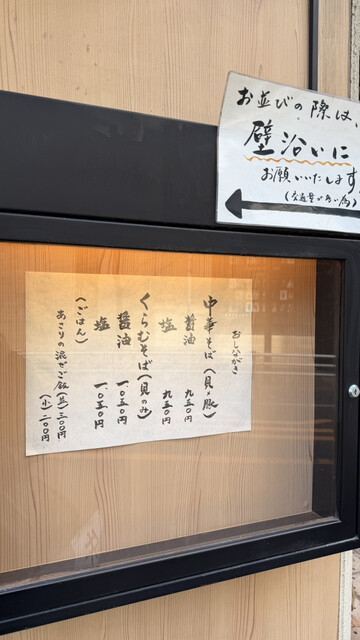 お並びの際は、
壁沿いに
お願いいたします
(交通量が多い為)
おしながき
中華そば(貝×豚)
醤油 九五〇円
塩 九五〇円
くらむそば(貝のみ)
醤油 一〇五〇円
塩 一〇五〇円
(ごはん)
あさりの混ぜご飯 (並)三〇〇円
(小)二〇〇円